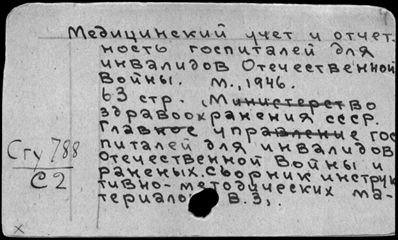 Медицинский учет и отчет-
ность госпиталей для
инвалидов Отечественной
Войны. М., 1946.
63 стр. (Министерство
здравоохранения СССР.
Главное управление гос-
питалей для инвалидов
Отечественной Войны и
раненых. Сборник инструк-
тивно-методических ма-
териалов В.3).
Сгу 788
С 2
x